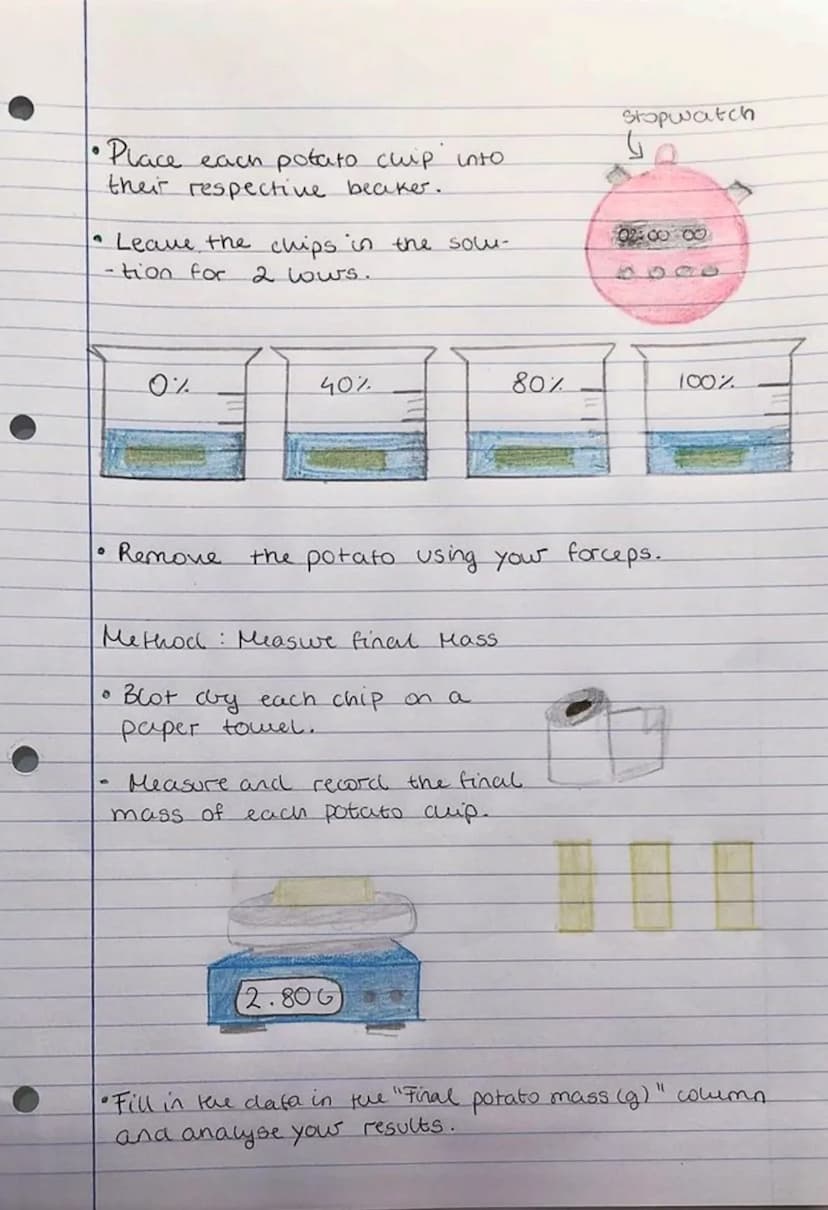 stopwatch
• Place each potato chip into
their respective beaker.
• Leave the chips in the solu-
-tion for 2 hours.
02:00:00
0%
40%
80%
100%
• Remove the potato using your forceps.
Method: Measure final Mass
• Blot dry each chip on a
paper towel.
- Measure and record the final
mass of each potato chip.
2.80G
• Fill in the data in the "Final potato mass (g)" column
and analyse your results.